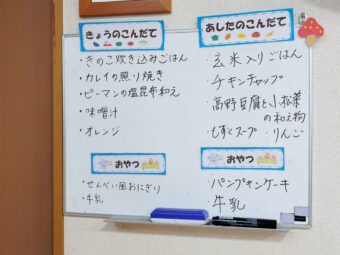 きょうのこんだて
・きのこ炊き込みごはん
・カレイの照り焼き
・ピーマンの塩昆布和え
・味噌汁
・オレンジ
おやつ
・せんべい風おにぎり
・牛乳
あしたのこんだて
・玄米入りごはん
・チキンチャップ
・高野豆腐と小松菜
の和え物
・もずくスープ ・りんご
おやつ
・パンプキンケーキ
・牛乳